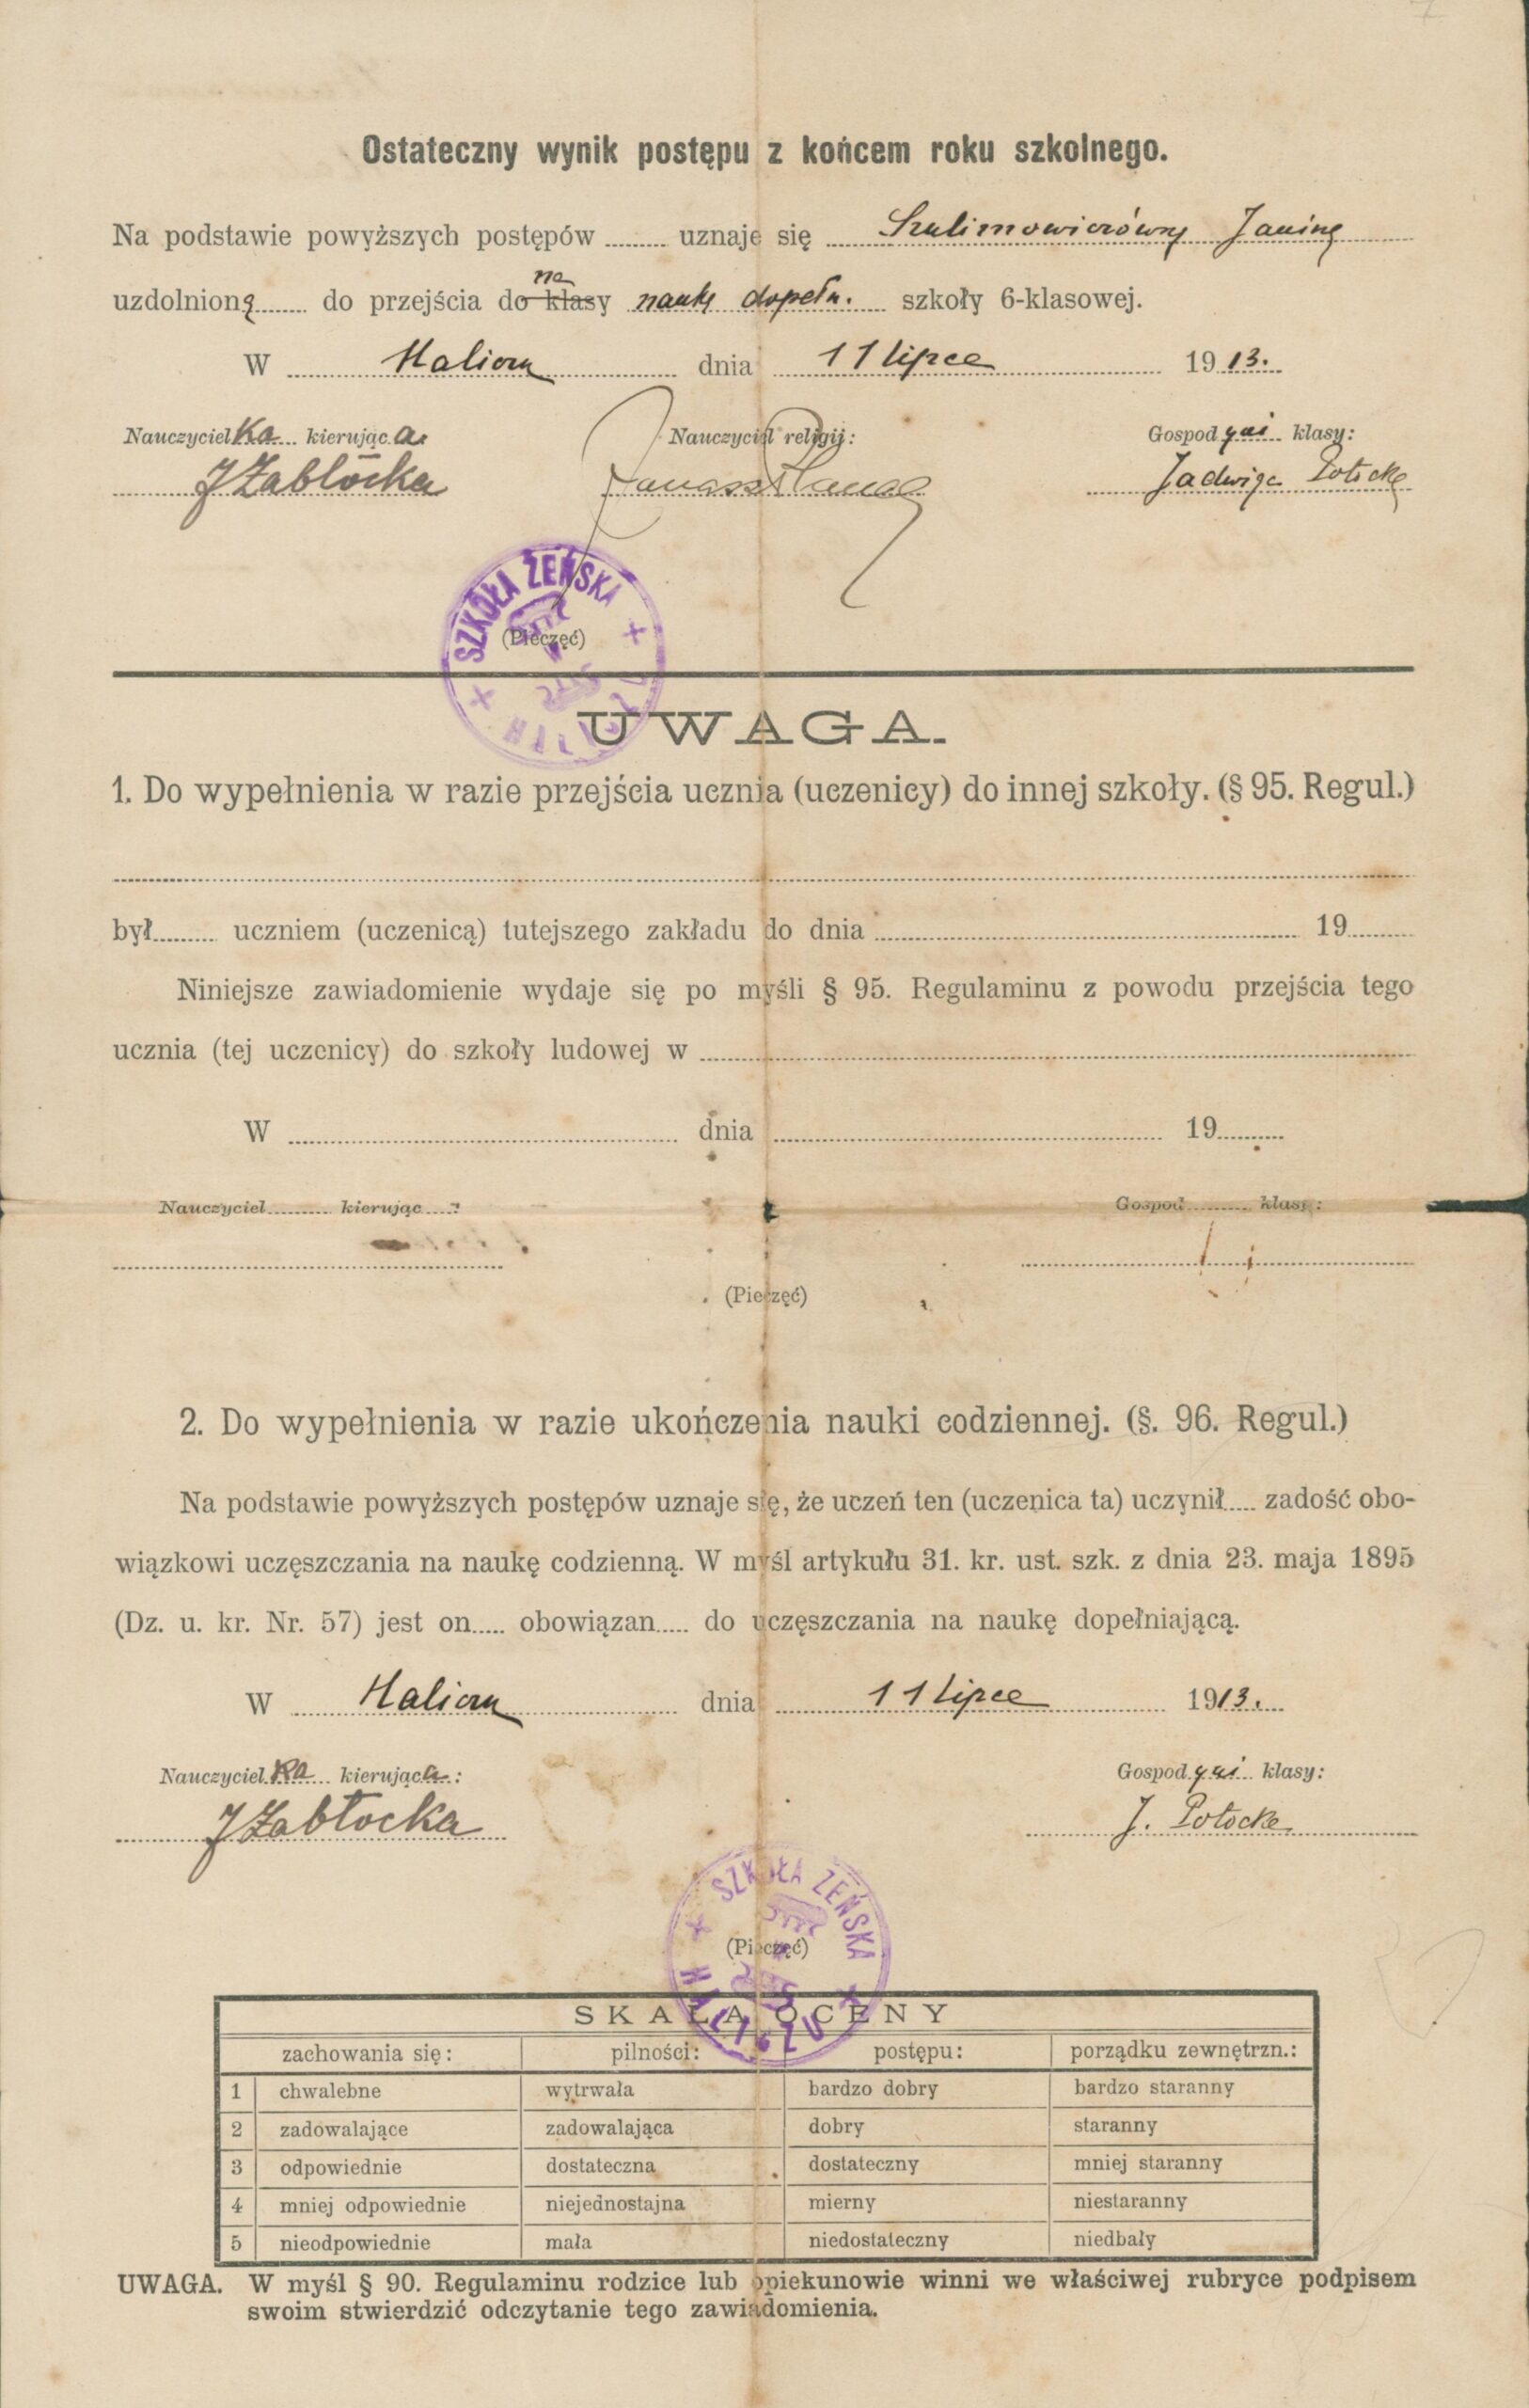 Ostateczny wynik postępu z końcem roku szkolnego.
Na podstawie powyższych postępów ........ uznaje się Szulimowiczównę Janinę
uzdolnioną ........ do przejścia do klasy na naukę dopełn. szkoły 6-klasowej.
W Haliczu dnia 11 lipca 1913.
Nauczycielka kierująca Nauczyciel religij: Gospodyni klasy:
J Zabłocka Jadwiga Potocka
SZKOŁA ŻEŃSKA
(Pieczęć)
UWAGA.
1. Do wypełnienia w razie przejścia ucznia (uczenicy) do innej szkoły. (§ 95. Regul.)
był.......... uczniem (uczenicą) tutejszego zakładu do dnia .......... 19..........
Niniejsze zawiadomienie wydaje się po myśli § 95. Regulaminu z powodu przejścia tego
ucznia (tej uczenicy) do szkoły ludowej w ..........
W .......... dnia .......... 19..........
Nauczyciel.......... kierując.....: Gospod.......... klasy:
(Pieczęć)
2. Do wypełnienia w razie ukończenia nauki codziennej. (§. 96. Regul.)
Na podstawie powyższych postępów uznaje się, że uczeń ten (uczenica ta) uczynił..... zadość obo-
wiązkowi uczęszczania na naukę codzienną. W myśl artykułu 31. kr. ust. szk. z dnia 23. maja 1895
(Dz. u. kr. Nr. 57) jest on..... obowiązan..... do uczęszczania na naukę dopełniającą.
W Haliczu dnia 11 lipca 1913.
Nauczycielka kierująca: Gospodyni klasy:
J Zabłocka J. Potocka
SZKOŁA ŻEŃSKA
(Pieczęć)
HALICZU
SKALA OCENY
zachowania się: pilności: postępu: porządku zewnętrzn.:
1 chwalebne wytrwała bardzo dobry bardzo staranny
2 zadowalające zadowalająca dobry staranny
3 odpowiednie dostateczna dostateczny mniej staranny
4 mniej odpowiednie niejednostajna mierny niestaranny
5 nieodpowiednie mała niedostateczny niedbały
UWAGA. W myśl § 90. Regulaminu rodzice lub opiekunowie winni we właściwej rubryce podpisem
swoim stwierdzić odczytanie tego zawiadomienia.